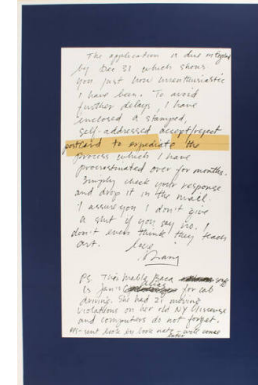 The application is due
by Dec 31 which shows
you just how unenthusiastic
I have been. To avoid
further delays, I have
enclosed a stamped,
self-addressed accept/reject
postcard to expediate the
process which I have
procrastinated over for months.
Simply check your response
and drop it in the mail
I assure you I don't give
a shit if you say no. I
don't even think they teach
art.
love,
PS.
is Jan's for cab
driving. She had 21 moving
violations on her old NY license
and computers do not forget.